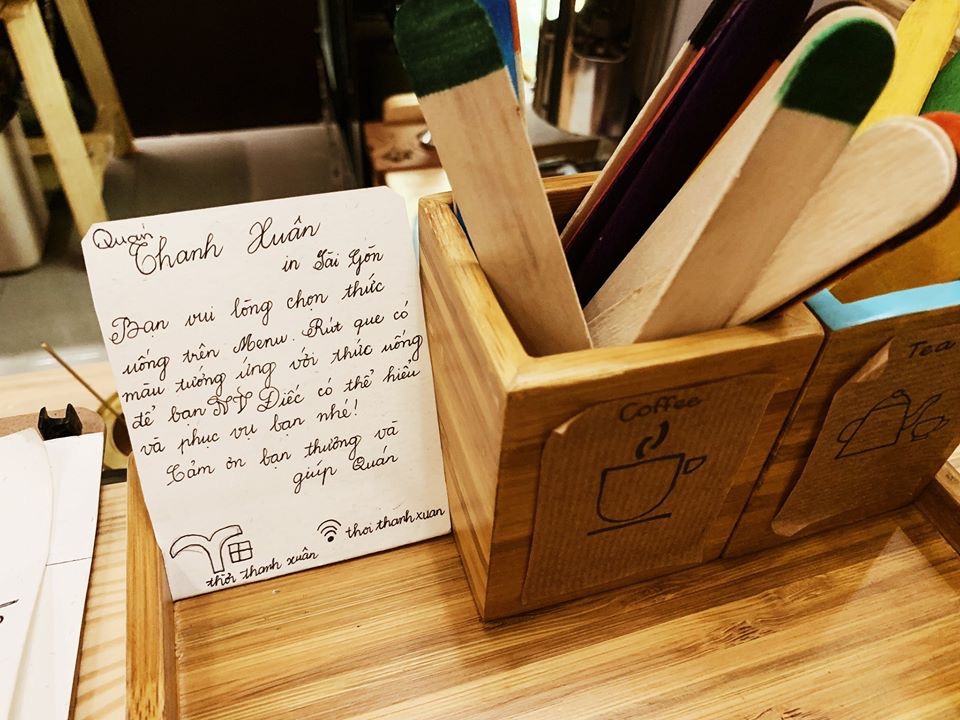 Quán
Thanh Xuân
in Sài Gòn
Bạn vui lòng chọn thức
uống trên Menu. Rút que có
màu tương ứng với thức uống
để bạn NV Điếc có thể hiểu
và phục vụ bạn nhé!
Cảm ơn bạn thương và
giúp Quán
thời thanh xuân
thoi thanh xuan
Coffee
Tea